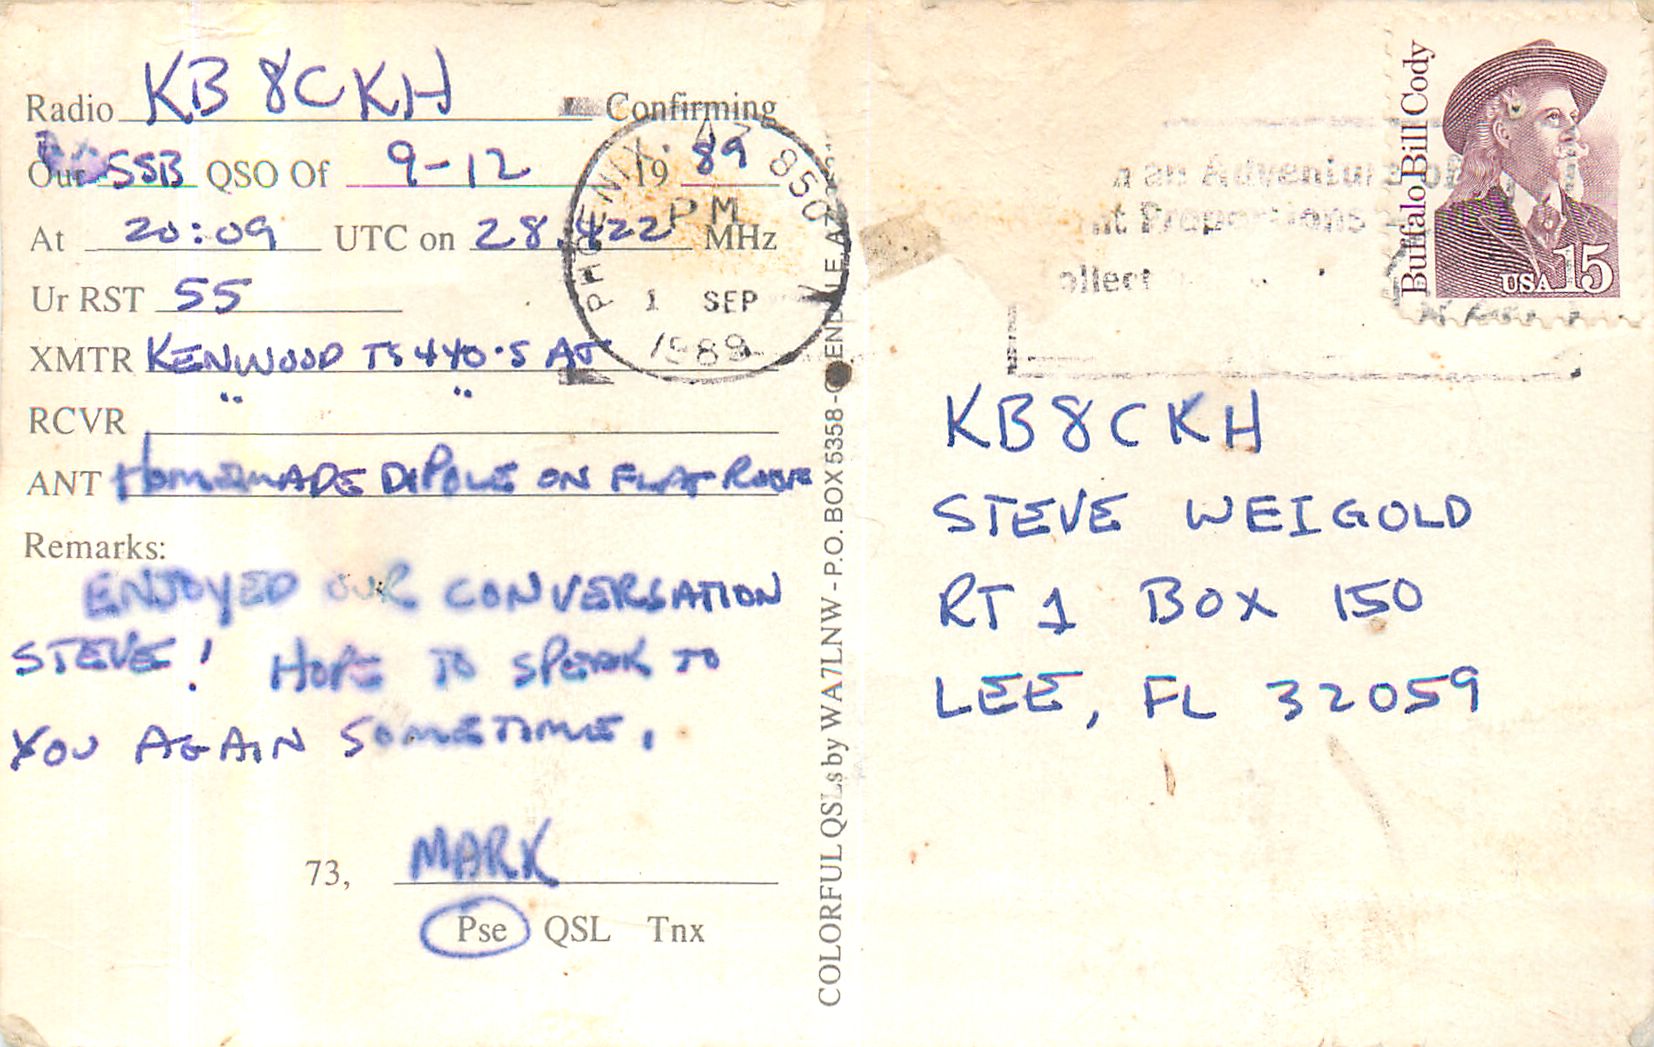 Radio KB8CKH Confirming
Our SSB QSO Of 9-12 1989
At 20:09 UTC on 28.422 MHz
Ur RST 55
XMTR KENWOOD TS440-S AT
RCVR " "
ANT HOMEMADE DIPOLE ON FLAT ROOF
Remarks:
ENJOYED OUR CONVERSATION
STEVE! HOPE TO SPEAK TO
YOU AGAIN SOMETIME.
73, MARK
Pse QSL Tnx
PHOENIX, AZ 850
PM
SEP
1989
COLORFUL QSLs by WA7LNW - P.O. BOX 5358 - GLENDALE, A
an Adventure of
Proportions
ollect
Buffalo Bill Cody
USA 15
KB8CKH
STEVE WEIGOLD
RT 1 BOX 150
LEE, FL 32059